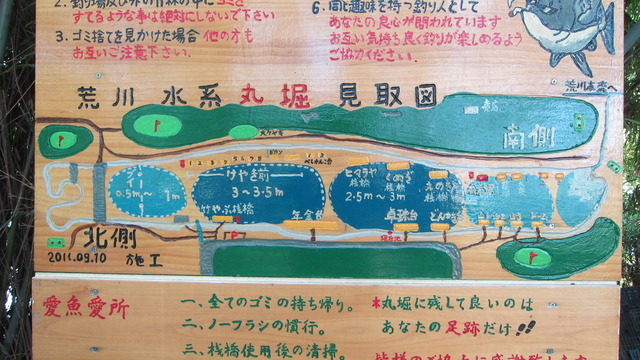 2. 釣り場及び外の竹林の中にゴミを
すてるような事は絶対にしないで下さい
3. ゴミ捨てを見かけた場合 他の方も
お互いご注意下さい。
6. 同じ趣味を持つ釣り人として
あなたの良心が問われています
お互い気持ち良く釣りが楽しめるよう
ご協力ください。
荒川水系丸堀見取図
荒川本流へ
南側
1 2 3 4 5 6 7 8
1 2
ブイ
0.5m～
1m
けやき前
3～3.5m
けやぶ桟橋
ヒマラヤ桟橋
2.5m～3m
くぬぎ桟橋
卓球台
北側
2011.09.10 施工
愛魚愛所
一、全てのゴミの持ち帰り。
二、ノーフラシの慣行。
三、桟橋使用後の清掃。
*丸堀に残して良いのは
あなたの足跡だけ!!